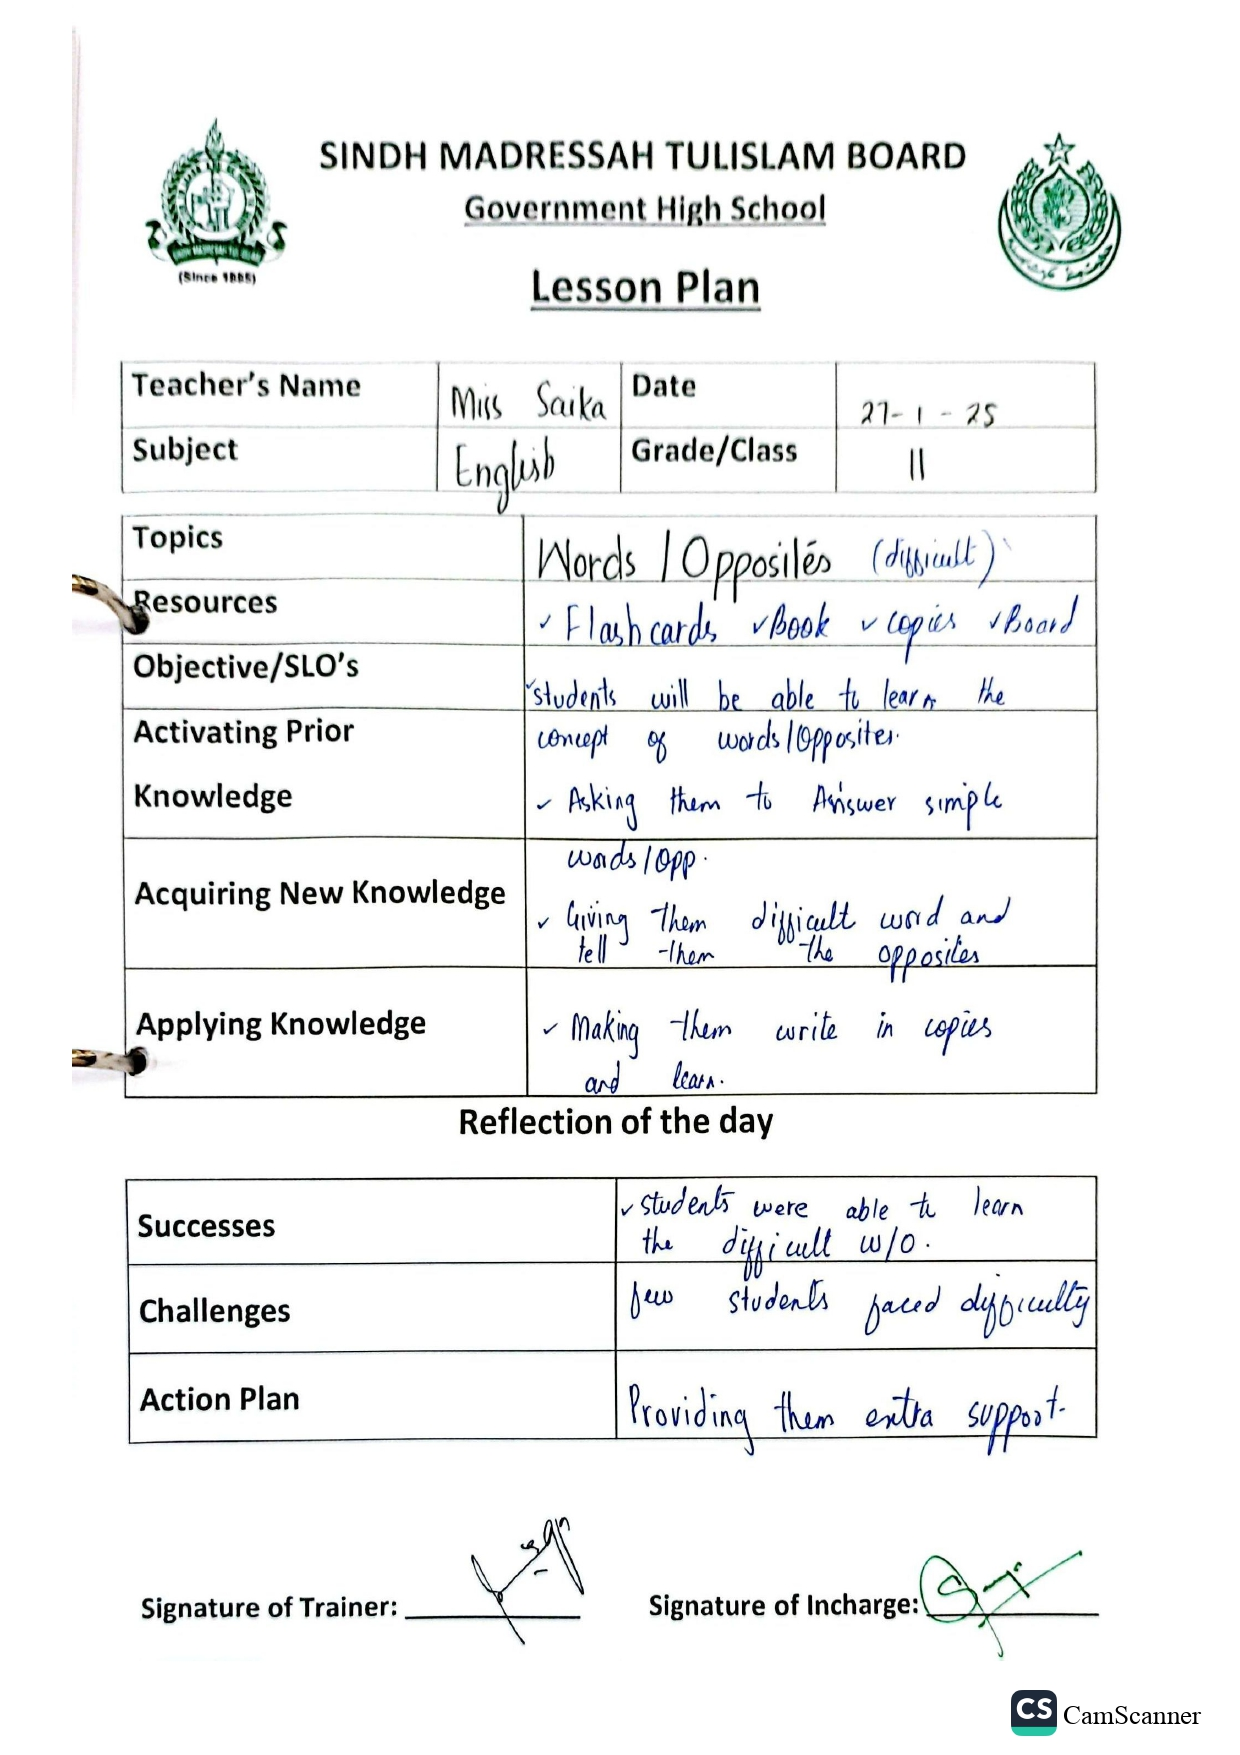 SINDH MADRESSAH TULISLAM BOARD
Government High School
(Since 1885)
Lesson Plan
Teacher's Name Miss Saika Date 27-1-25
Subject English Grade/Class II
Topics Words / Opposites (difficult)
Resources ✓ Flash cards ✓ Book ✓ copies ✓ Board
Objective/SLO's ✓ students will be able to learn the
Activating Prior concept of words/Opposites.
Knowledge ✓ Asking them to Answer simple
words/opp.
Acquiring New Knowledge ✓ Giving them difficult word and
tell them the opposites
Applying Knowledge ✓ Making them write in copies
and learn.
Reflection of the day
✓ students were able to learn
Successes the difficult w/o.
Challenges few students faced difficulty
Action Plan Providing them extra support.
Signature of Trainer: Signature of Incharge:
CS CamScanner